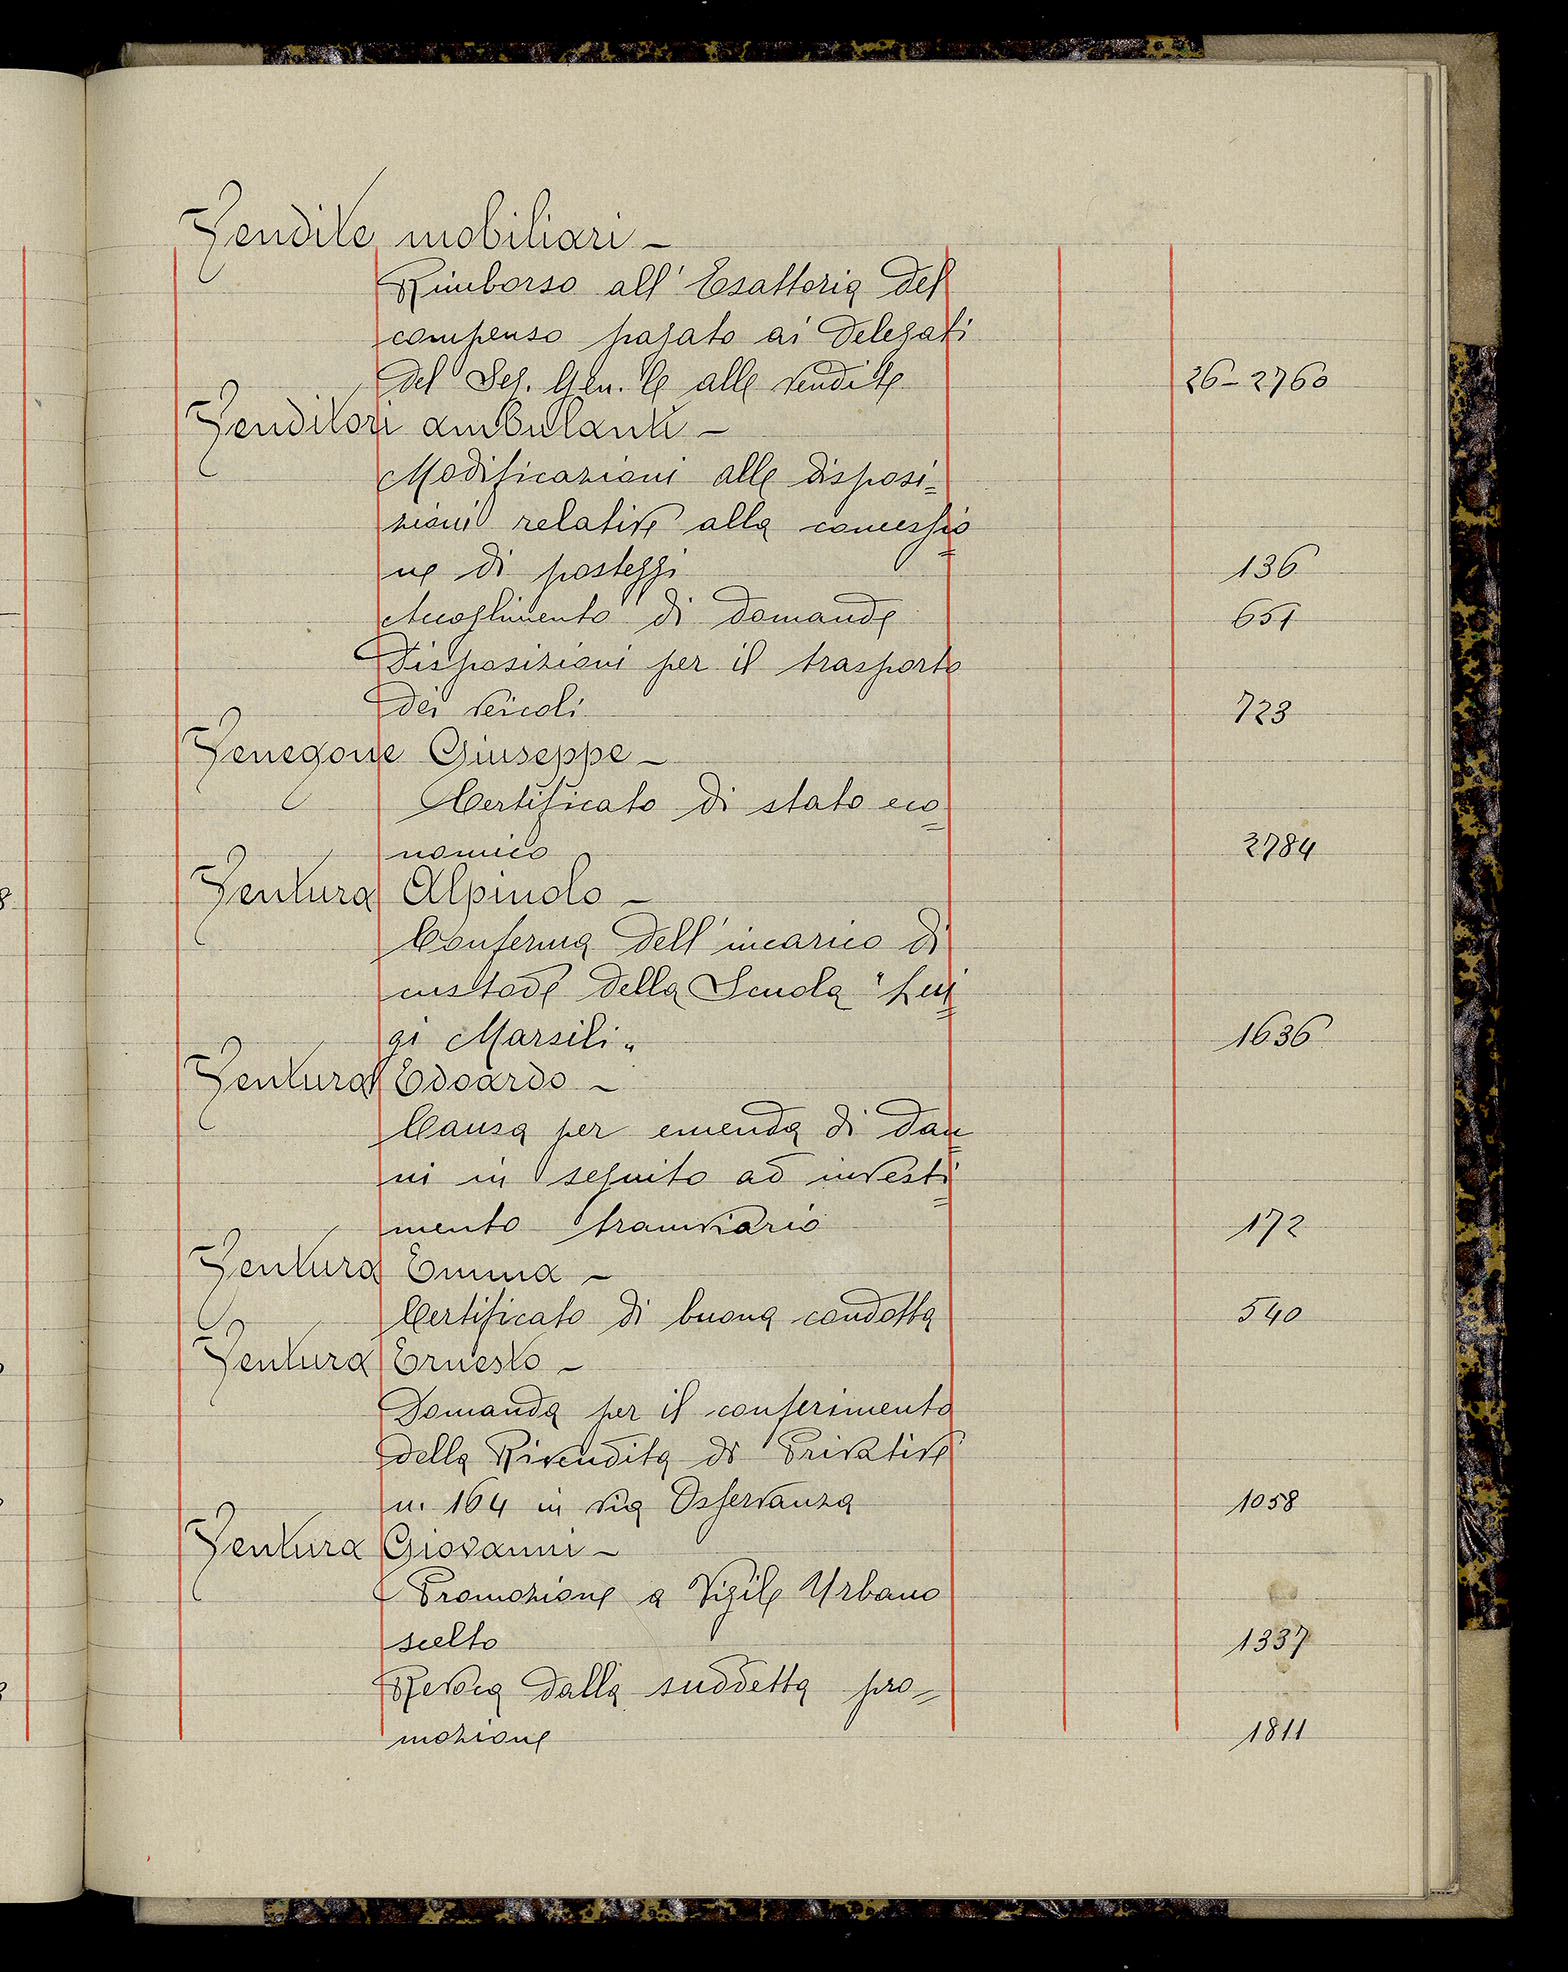 Vendite mobiliari -
Rimborso all'Esattoria del
compenso pagato ai delegati
del Seg. Gen. le alle vendite 26-2760
Venditori ambulanti -
Modificazioni alle disposi=
zioni relative alla concessio=
ne di posteggi 136
Accoglimento di domande 651
Disposizioni per il trasporto
dei veicoli 723
Venegone Giuseppe -
Certificato di stato eco=
nomico 2784
Ventura Alpinolo -
Conferma dell'incarico di
custode della Scuola "Lui=
gi Marsili" 1636
Ventura Edoardo -
Causa per emenda di dan=
ni in seguito ad investi=
mento tramviario 172
Ventura Emma -
Certificato di buona condotta 540
Ventura Ernesto -
Domanda per il conferimento
della Rivendita di Privative
n. 164 in via Osservanza 1058
Ventura Giovanni -
Promozione a Vigile Urbano
scelto 1337
Revoca dalla suddetta pro=
mozione 1811